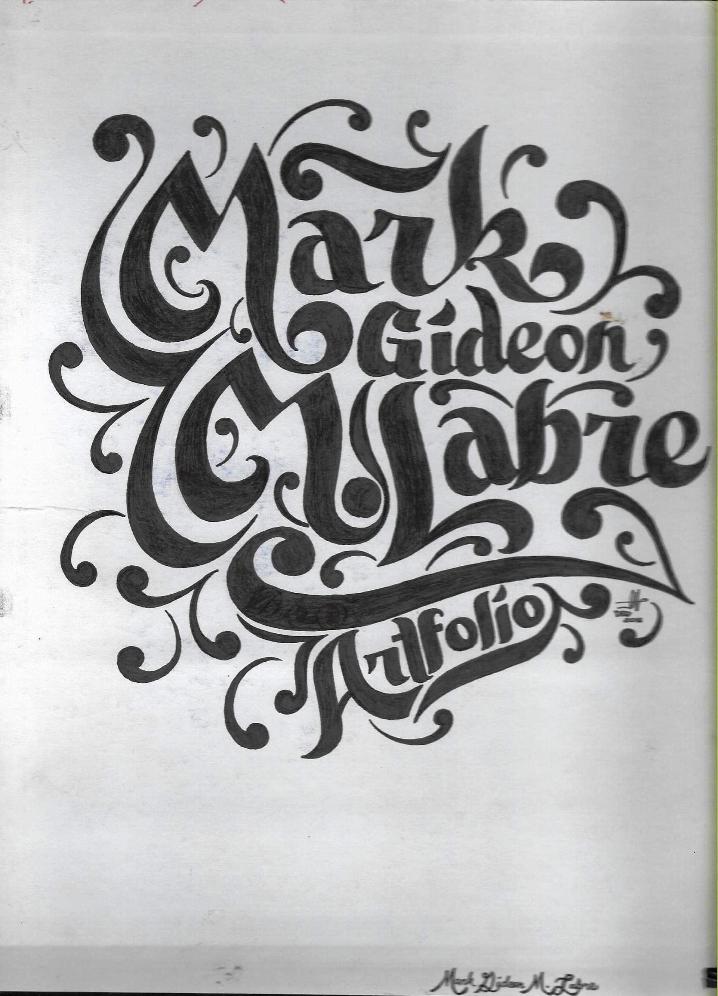 Mark
Gideon
M. Labre
Artfolio
Mark Gideon M. Labre